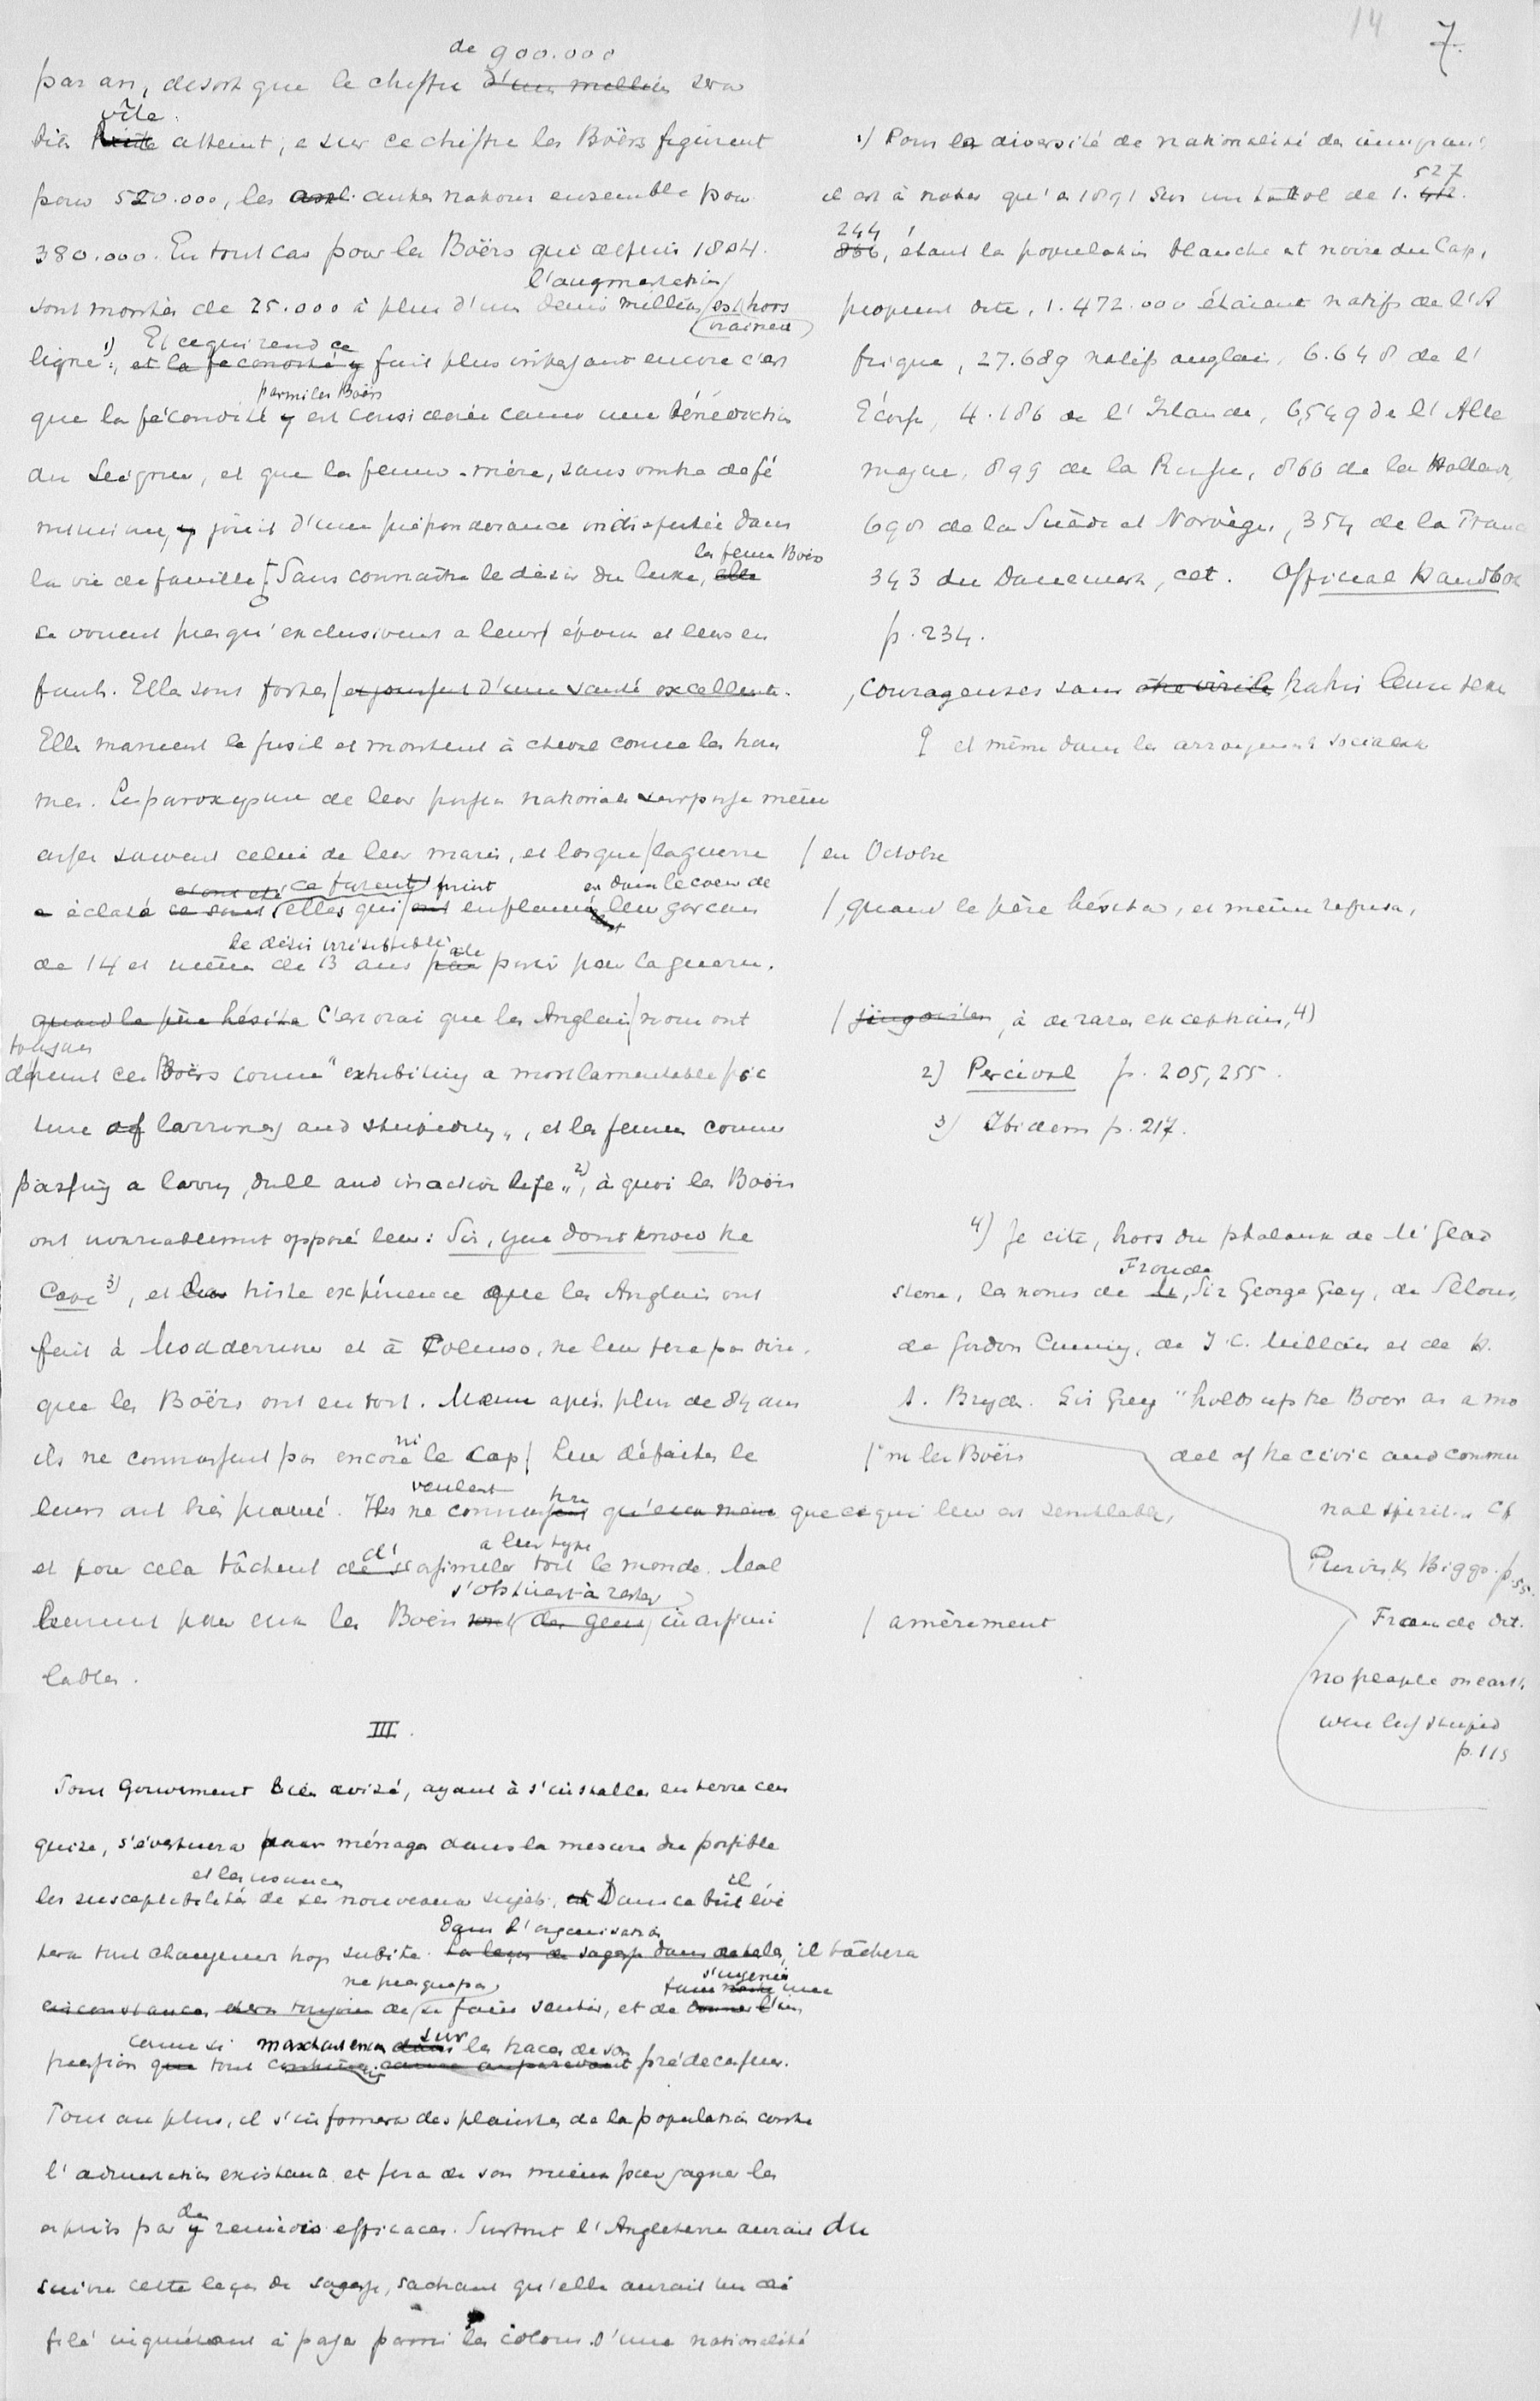 14 7.
de 900.000
par an, desorte que le chiffre d'un million sera
vîte
bien atteint, e sur ce chiffre les Boërs figurent
pour 520.000, les autres nations ensemble pour
380.000. En tout cas pour les Boërs qui depuis 1804.
l'augmentation
sont montés de 25.000 à plus d'un demi million est hors
vraiment
ligne 1), Et ce qui rend ce
et la fécondité y fait plus intéressant encore c'est
parmi les Boërs
que la fécondité y est considérée comme une bénédiction
du Seigneur, et que la femme-mère, sans ombre de fé
minisme, y jouit d'une prépondérance indisputée dans
la femme Boër
la vie de famille. Sans connaître le désir du luxe, elle
se vouent presqu'exclusivement a leurs époux et leurs en
fants. Elles sont fortes et jouissent d'une santé excellente.
Elles manient le fusil et montent à cheval comme les hom
mes. Le paroxysme de leur passion nationale surpasse même
assez souvent celui de leur maris, et lorsque la guerre
ce furent en dans le cœur de
a éclaté elles qui ont enflammé leur garçons
le désir irrésistible
de 14 et même de 13 ans de partir pour la guerre.
quand le père hésita C'est vrai que les Anglais nous ont
toujours
dépeint ces Boërs comme "exhibiting a most lamentable pic
ture of laziness and stupidity", et les femmes comme
passing a lazy, dull and inactive life" 2), à quoi les Boërs
ont invariablement opposé leur: Sir, you dont know the
Cape 3), et la triste expérience que les Anglais ont
fait à Modderrivier et à Colenso, ne leur fera pas dire,
que les Boërs ont eu tort. Même après plus de 84 ans
ni
ils ne connaissent pas encore le Cap Leur défaites le
veulent
leurs ont bien prouvé. Ils ne connaissent qu'eux même que ce qui leur est semblable,
d' a leur type
et pour cela tâchent de s'assimiler tout le monde. Mal
s'obstinent à rester
heureusement pour eux les Boërs sont des gens inassimi
lables.
III.
Tout Gouvernement bien avisé, ayant à s'installer en terre con
quise, s'évertuera pour ménager dans la mesure du possible
et les usances
les susceptibilités de ses nouveaux sujets. Dans ce but il évi
dans l'organisation
tera tout changement trop subite. La leçon de sagesse dans de telles, il tâchera
ne presque pas s'ingénier
circonstances sera toujours de se faire sentir, et de donner l'im
comme si marchait encore sur les traces de son
pression que tout continue comme auparavant prédécesseur.
Tout au plus, il s'informera des plaintes de la population contre
l'administration existante et fera de son mieux pour gagner les
des
esprits par y remèdes efficaces. Surtout l'Angleterre aurait du
suivre cette leçon de sagesse, sachant qu'elle aurait un dé
filé inquiétant à passer parmi les colons d'une nationalité
1) Pour la diversité de nationalité des immigrants
527
il est à noter qu'en 1891 sur un tottal de 1.
244
866, étant la population blanche et noire du Cap,
proprement dite, 1.472.000 étaient natifs de l'A
frique, 27.689 natifs anglais, 6.648 de l'
Ecosse, 4.186 de l'Irlande, 6549 de l'Alle
magne, 899 de la Russie, 860 de la Hollande
690 de la Suède et Norvège, 354 de la France
343 du Danemark, cet. Official Handbook
p. 234.
, courageuses sans être viriles trahir leur sexe
et même dans les arrangements sociaux
/ en Octobre
/, quand le père hésita, et même refusa,
/ jingoistes, à de rares exceptions, 4)
2) Percival p. 205, 255.
3) Ibidem p. 217.
4) Je cite, hors du phalanx de M. Glad
Froude
stone, les noms de, Sir George Grey, de Selous,
de Gordon Cuming, de J. C. Millais et de H.
A. Bryden. Sir Grey "holds up the Boers as a mo
/ ni les Boërs
del of the civic and commu
nal spirit". Cf
Purvis & Biggs. p. 55.
Froude dit.
/ amèrement
no people on earth
were less stupid
p. 115